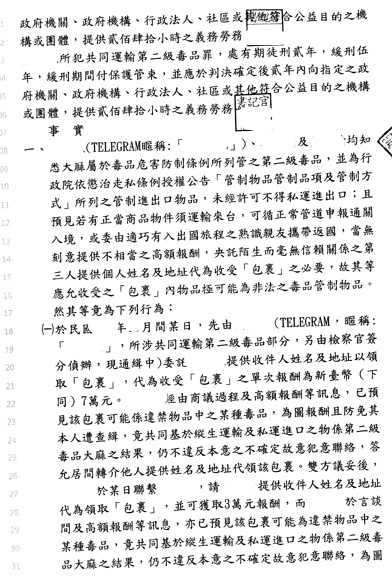 政府機關、政府機構、行政法人、社區或其他符合公益目的之機
構或團體，提供貳佰肆拾小時之義務勞務
.所犯共同運輸第二級毒品罪，處有期徒刑貳年，緩刑伍
年，緩刑期間付保護管束，並應於判決確定後貳年內向指定之政
府機關、政府機構、行政法人、社區或其他符合公益目的之機構
或團體，提供貳佰肆拾小時之義務勞務
書記官
事 實
一、 (TELEGRAM暱稱:「 」)、 及 均知
悉大麻屬於毒品危害防制條例所列管之第二級毒品，並為行
政院依懲治走私條例授權公告「管制物品管制品項及管制方
式」所列之管制進出口物品，未經許可不得私運進出口；且
預見若有正當商品物件須運輸來台，可循正常管道申報通關
入境，或委由適巧有入出國旅程之熟識親友攜帶返國，當無
刻意提供不相當之高額報酬，央託陌生而毫無信賴關係之第
三人提供個人姓名及地址代為收受「包裹」之必要，故其等
應允收受之「包裹」內物品極可能為非法之毒品管制物品。
然其等竟為下列行為：
㈠於民國 年 月間某日，先由 (TELEGRAM，暱稱:
「 」，所涉共同運輸第二級毒品部分，另由檢察官簽
分偵辦，現通緝中)委託 提供收件人姓名及地址以領
取「包裹」，代為收受「包裹」之單次報酬為新臺幣（下
同）7萬元。 經由商議過程及高額報酬等訊息，已預
見該包裹可能係違禁物品中之某種毒品，為圖報酬且防免其
本人遭查緝，竟共同基於縱生運輸及私運進口之物係第二級
毒品大麻之結果，仍不違反本意之不確定故意犯意聯絡，答
允居間轉介他人提供姓名及地址代領該包裹。雙方議妥後，
於某日聯繫 ，請 提供收件人姓名及地址
代為領取「包裹」，並可獲取3萬元報酬，而 於言談
間及高額報酬等訊息，亦已預見該包裹可能為違禁物品中之
某種毒品，竟共同基於縱生運輸及私運進口之物係第二級毒
品大麻之結果，仍不違反本意之不確定故意犯意聯絡，為圖